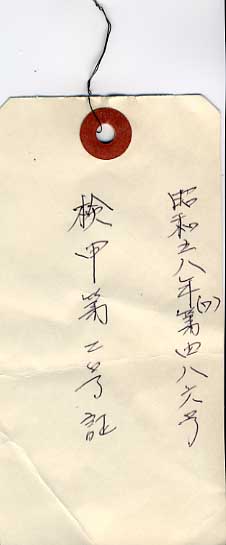 昭和五八年(ワ)第四八六号
検甲第二号証